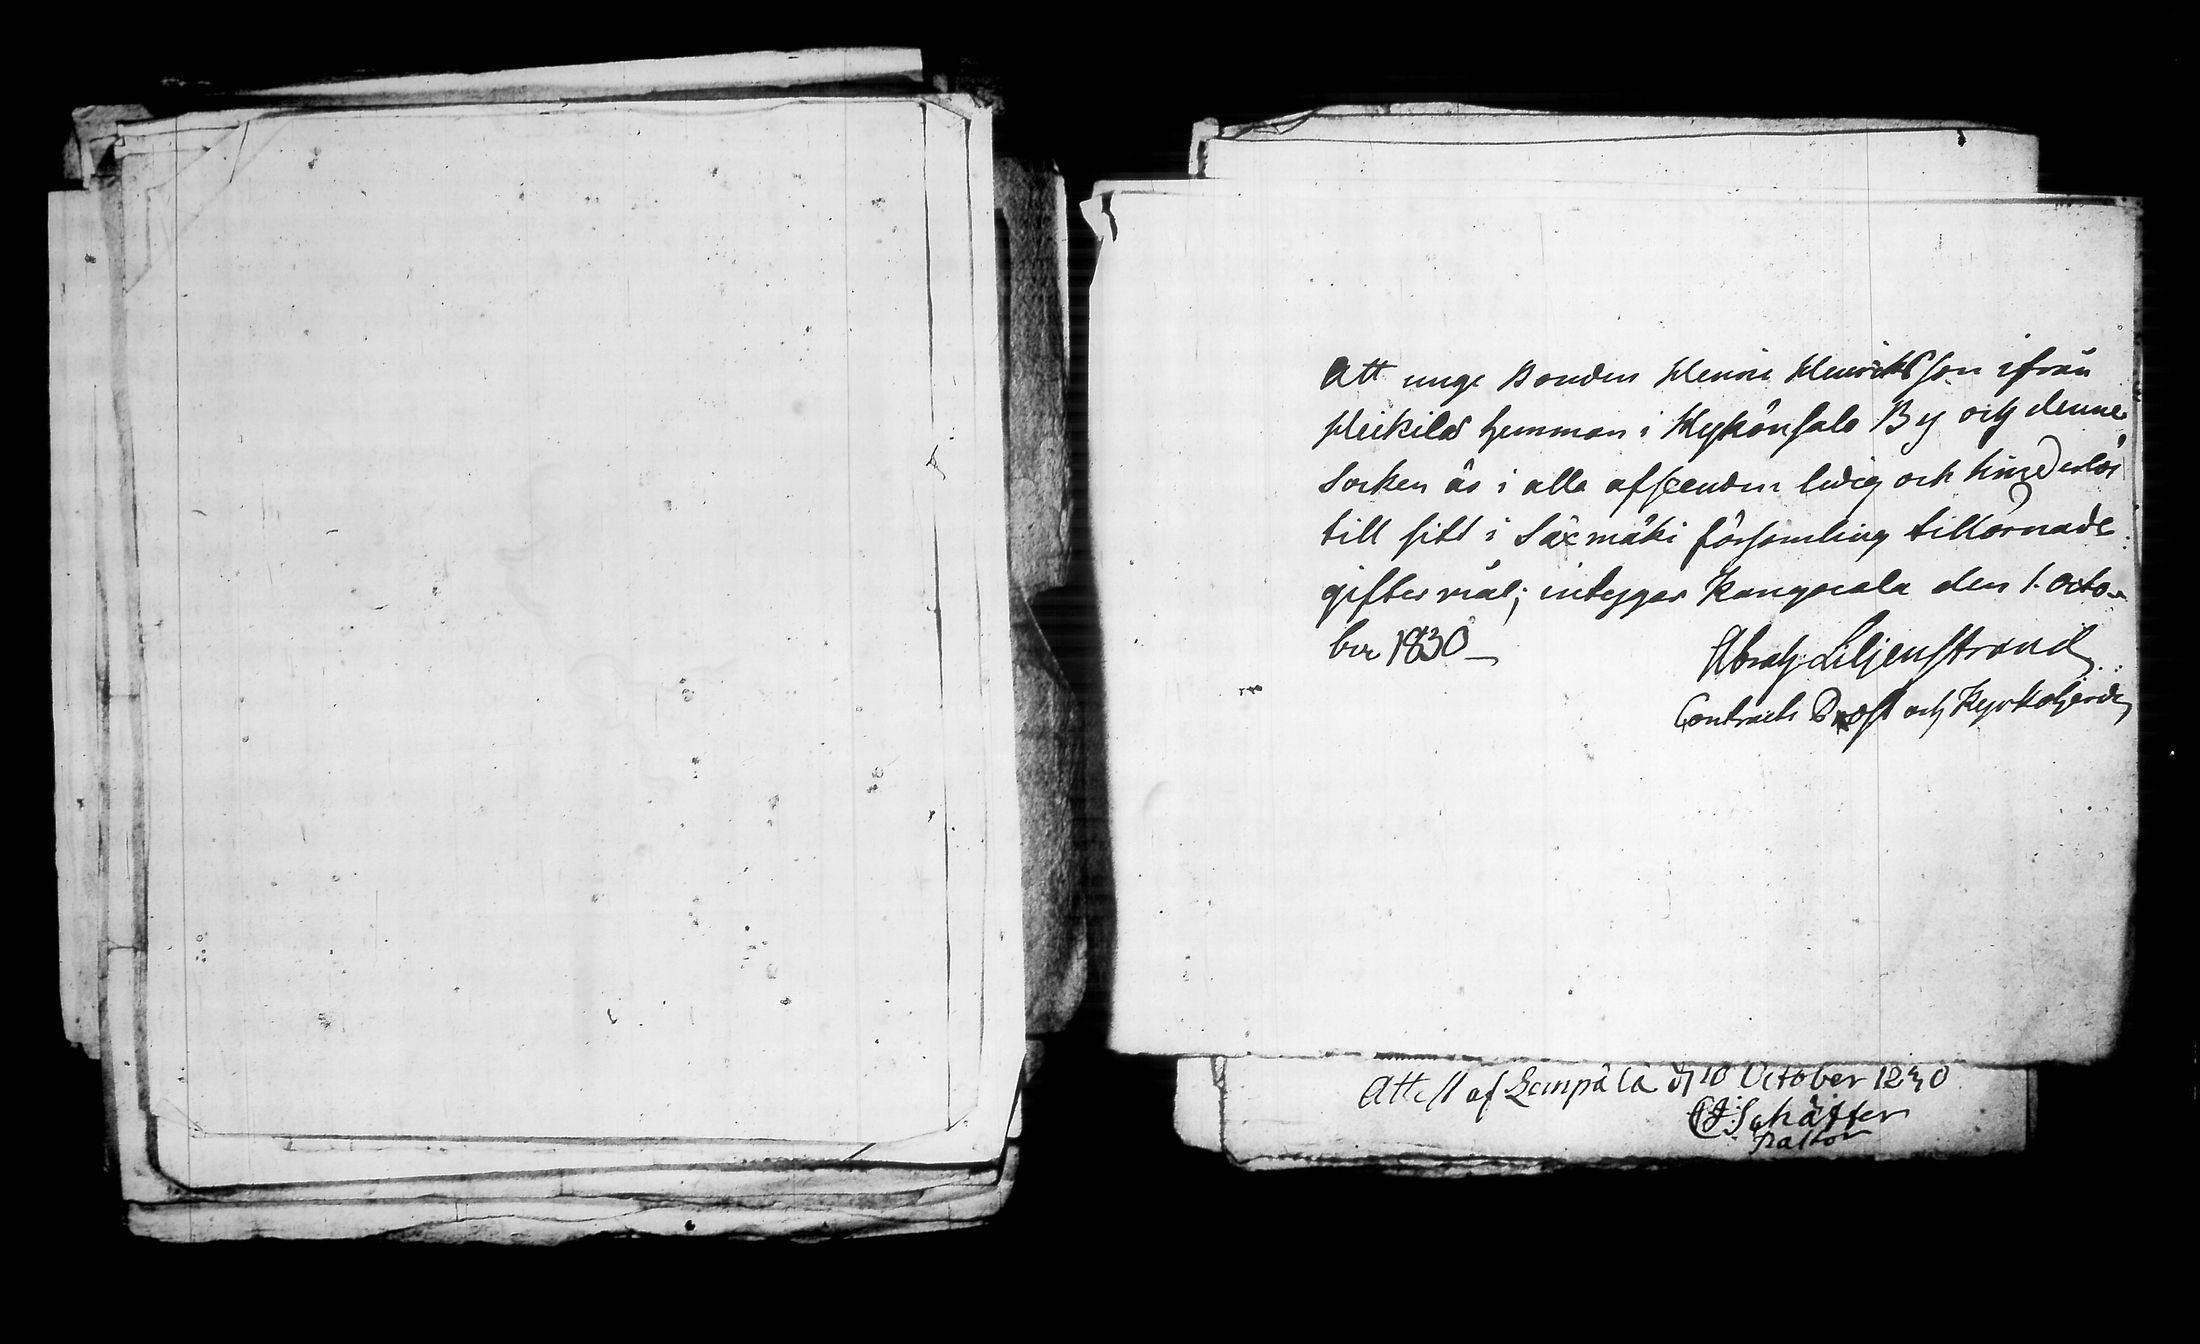 Att unge Bonden Henric Henricksson ifrån
Heikilä hemman i Hyhönsalo By och denne
Socken är i alla afseenden ledig och hinderlös
till sitt i Säxmäki församling tillärnade
giftermål; intygar Kangasala den 1. Octo-
ber 1830 _
Abrah. Liljenstrand
Contracts Prost och Kyrkoherde
Attest af Lempälä d 10 October 1830
CJ Schäffer
Pastor